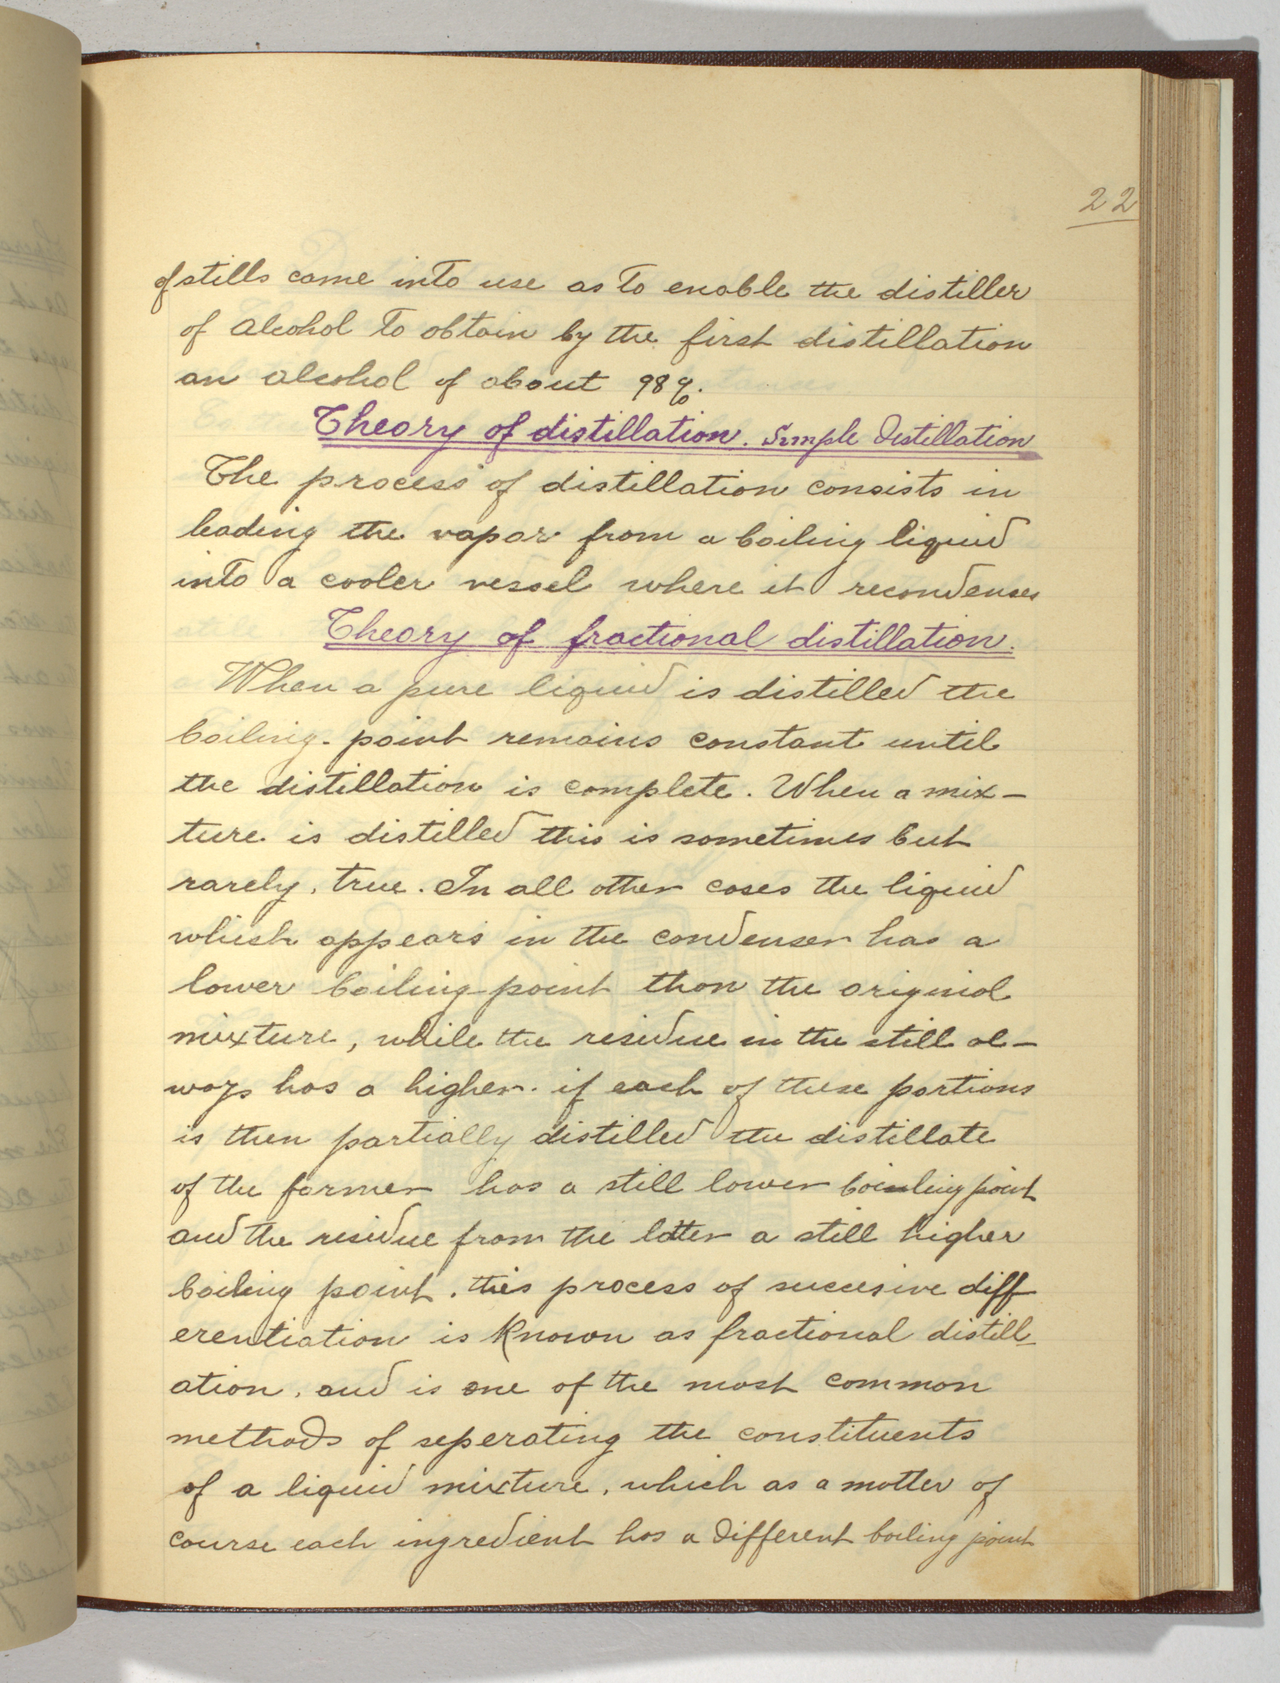 22
of stills came into use as to enable the distiller
of alcohol to obtain by the first distillation
an alcohol of about 98%.
Theory of distillation. Simple Distillation
The process of distillation consists in
leading the vapor from a boiling liquid
into a cooler vessel where it recondenses
Theory of fractional distillation.
When a pure liquid is distilled the
boiling-point remains constant until
the distillation is complete. When a mix-
ture is distilled this is sometimes but
rarely, true. In all other cases the liquid
which appears in the condenser has a
lower boiling-point than the original
mixture, while the residue in the still al-
ways has a higher. if each of these portions
is then partially distilled the distillate
of the former has a still lower boiling point
and the residue from the latter a still higher
boiling point. this process of succesive diff
erentiation is known as fractional distill-
ation, and is one of the most common
methods of seperating the constituents
of a liquid mixture, which as a matter of
course each ingredient has a different boiling point